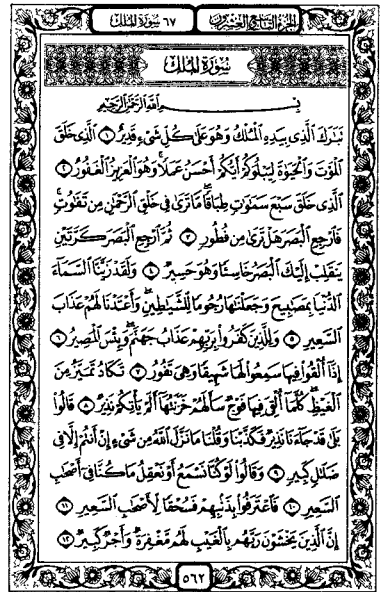 الجزء التاسع والعشرون ٦٧ سورة الملك
سُورَةُ الْمُلْكِ
بِسْمِ اللَّهِ الرَّحْمَٰنِ الرَّحِيمِ
تَبَٰرَكَ ٱلَّذِى بِيَدِهِ ٱلْمُلْكُ وَهُوَ عَلَىٰ كُلِّ شَىْءٍ قَدِيرٌ ١ ٱلَّذِى خَلَقَ
ٱلْمَوْتَ وَٱلْحَيَوٰةَ لِيَبْلُوَكُمْ أَيُّكُمْ أَحْسَنُ عَمَلًا ۚ وَهُوَ ٱلْعَزِيزُ ٱلْغَفُورُ ٢
ٱلَّذِى خَلَقَ سَبْعَ سَمَٰوَٰتٍ طِبَاقًا ۖ مَّا تَرَىٰ فِى خَلْقِ ٱلرَّحْمَٰنِ مِن تَفَٰوُتٍ ۖ
فَٱرْجِعِ ٱلْبَصَرَ هَلْ تَرَىٰ مِن فُطُورٍ ٣ ثُمَّ ٱرْجِعِ ٱلْبَصَرَ كَرَّتَيْنِ
يَنقَلِبْ إِلَيْكَ ٱلْبَصَرُ خَاسِئًا وَهُوَ حَسِيرٌ ٤ وَلَقَدْ زَيَّنَّا ٱلسَّمَآءَ
ٱلدُّنْيَا بِمَصَٰبِيحَ وَجَعَلْنَٰهَا رُجُومًا لِّلشَّيَٰطِينِ ۖ وَأَعْتَدْنَا لَهُمْ عَذَابَ
ٱلسَّعِيرِ ٥ وَلِلَّذِينَ كَفَرُوا۟ بِرَبِّهِمْ عَذَابُ جَهَنَّمَ ۖ وَبِئْسَ ٱلْمَصِيرُ ٦
إِذَآ أُلْقُوا۟ فِيهَا سَمِعُوا۟ لَهَا شَهِيقًا وَهِىَ تَفُورُ ٧ تَكَادُ تَمَيَّزُ مِنَ
ٱلْغَيْظِ ۖ كُلَّمَآ أُلْقِىَ فِيهَا فَوْجٌ سَأَلَهُمْ خَزَنَتُهَآ أَلَمْ يَأْتِكُمْ نَذِيرٌ ٨ قَالُوا۟
بَلَىٰ قَدْ جَآءَنَا نَذِيرٌ فَكَذَّبْنَا وَقُلْنَا مَا نَزَّلَ ٱللَّهُ مِن شَىْءٍ إِنْ أَنتُمْ إِلَّا فِى
ضَلَٰلٍ كَبِيرٍ ٩ وَقَالُوا۟ لَوْ كُنَّا نَسْمَعُ أَوْ نَعْقِلُ مَا كُنَّا فِىٓ أَصْحَٰبِ
ٱلسَّعِيرِ ١٠ فَٱعْتَرَفُوا۟ بِذَنۢبِهِمْ فَسُحْقًا لِّأَصْحَٰبِ ٱلسَّعِيرِ ١١
إِنَّ ٱلَّذِينَ يَخْشَوْنَ رَبَّهُم بِٱلْغَيْبِ لَهُم مَّغْفِرَةٌ وَأَجْرٌ كَبِيرٌ ١٢
٥٦٢